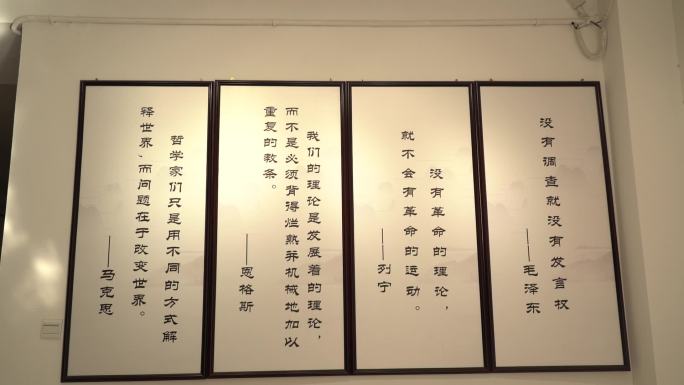 哲学家们只是用不同的方式解
释世界,而问题在于改变世界。
——马克思
我们的理论是发展着的理论,
而不是必须背得烂熟并机械地加以
重复的教条。
——恩格斯
没有革命的理论,
就不会有革命的运动。
——列宁
没有调查就没有发言权
——毛泽东